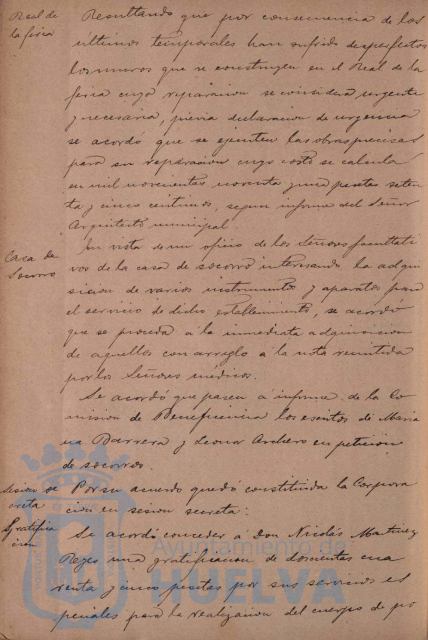 Real de
la feria
Resultando que por consecuencia de los
últimos temporales han sufrido desperfectos
los muros que se construyen en el Real de la
feria cuya reparacion se considera urgente
y necesaria, previa declaracion de urgencia
se acordó que se ejecuten las obras precisas
para su reparacion cuyo costo se calcula
en mil novecientas noventa y una pesetas seten
ta y cinco centimos, segun informe del Señor
Arquitecto municipal
Casa de
Socorro
En vista de un oficio de los Señores facultati
vos de la casa de socorro interesando la adqui
sicion de varios instrumentos y aparatos para
el servicio de dicho establecimiento, se acordó
que se proceda a la inmediata adquisicion
de aquellos con arreglo a la nota remitida
por los Señores médicos.
Se acordó que pasen á informe de la Co
mision de Beneficencia los escritos de Maria
na Barrera y Leonor en peticion
de socorros.
Sesion se
creta
Por su acuerdo quedó constituida la Corpora
cion en sesion secreta:
Gratifica
cion
Se acordó conceder á Don Nicolás Martinez
Reyes una gratificacion de doscientas cua
renta y cinco pesetas por sus servicios es
peciales para la realizacion del cuerpo de po
Ayuntamiento de
HUELVA